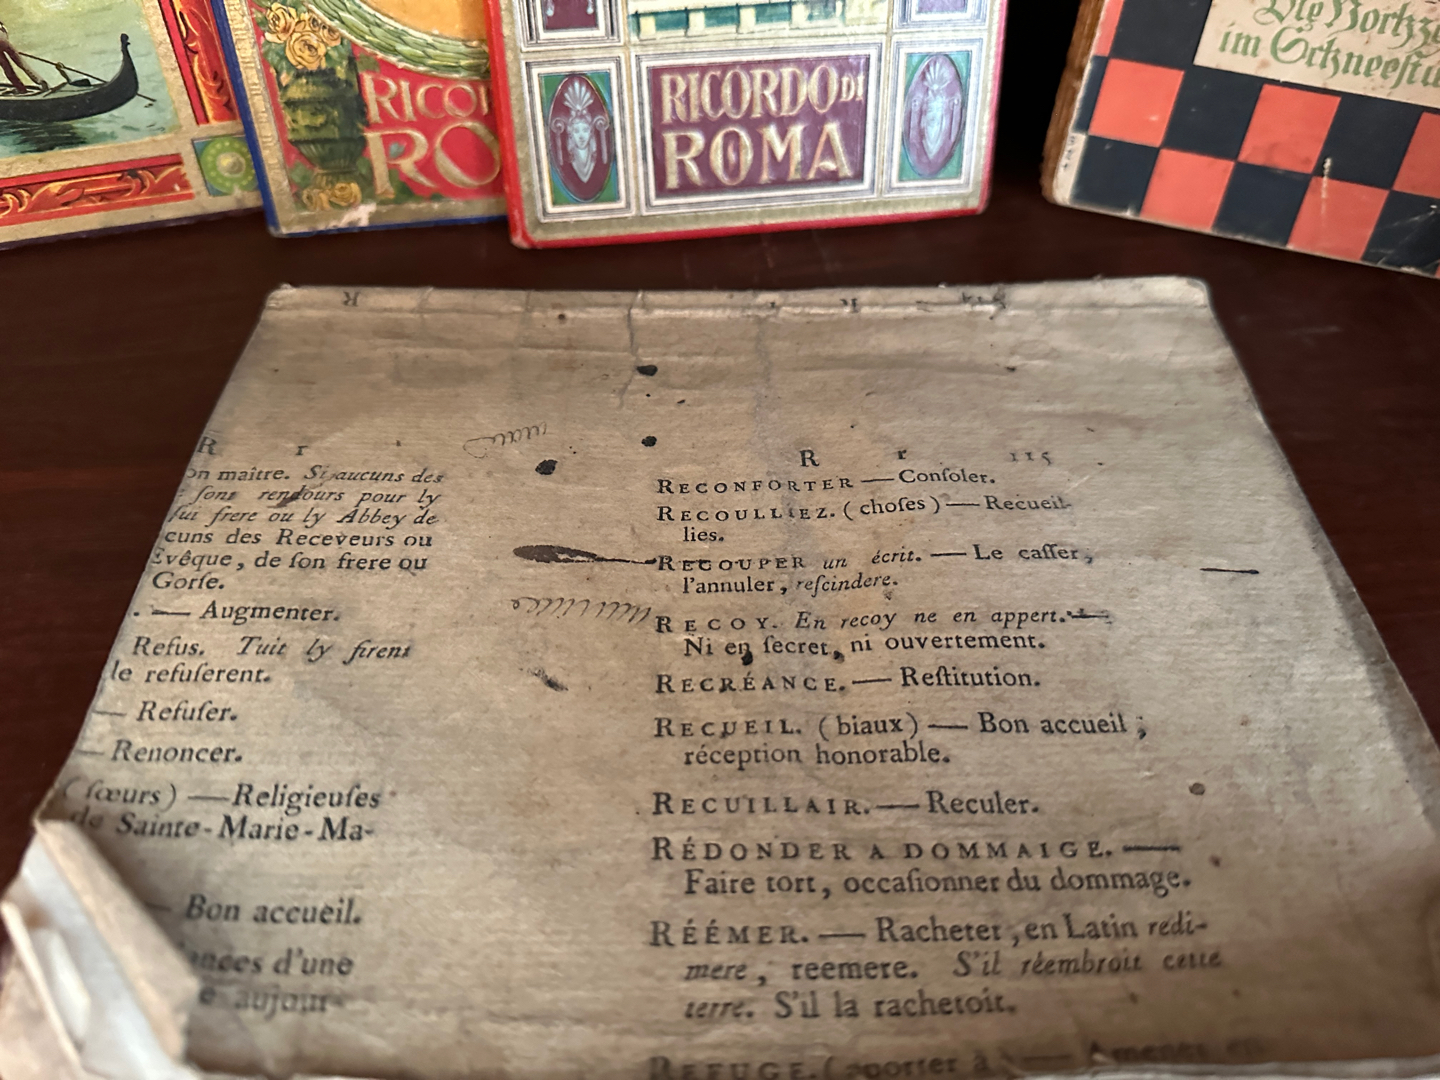 RICOR
RO
RICORDO DI
ROMA
im Schneestu
R
R r
on maître. Si aucuns des
ſont rendours pour ly
ſui frere ou ly Abbey de
cuns des Receveurs ou
Evêque, de ſon frere ou
Gorſe.
. — Augmenter.
Refus. Tuit ly firent
le refuſerent.
— Refuſer.
— Renoncer.
(ſœurs) — Religieuſes
de Sainte-Marie-Ma-
— Bon accueil.
ances d'une
e aujour-
R r 115
RECONFORTER — Conſoler.
RECOULLIEZ. (choſes) — Recueil-
lies.
RECOUPER un écrit. — Le caſſer,
l'annuler, reſcindere.
RECOY. En recoy ne en appert. —
Ni en ſecret, ni ouvertement.
RECRÉANCE. — Reſtitution.
RECUEIL. (biaux) — Bon accueil;
réception honorable.
RECUILLAIR. — Reculer.
RÉDONDER A DOMMAIGE. —
Faire tort, occaſionner du dommage.
RÉÉMER. — Racheter, en Latin redi-
mere, reemere. S'il réembroit cette
terre. S'il la rachetoit.
REFUGE. (aporter à) — Amener en